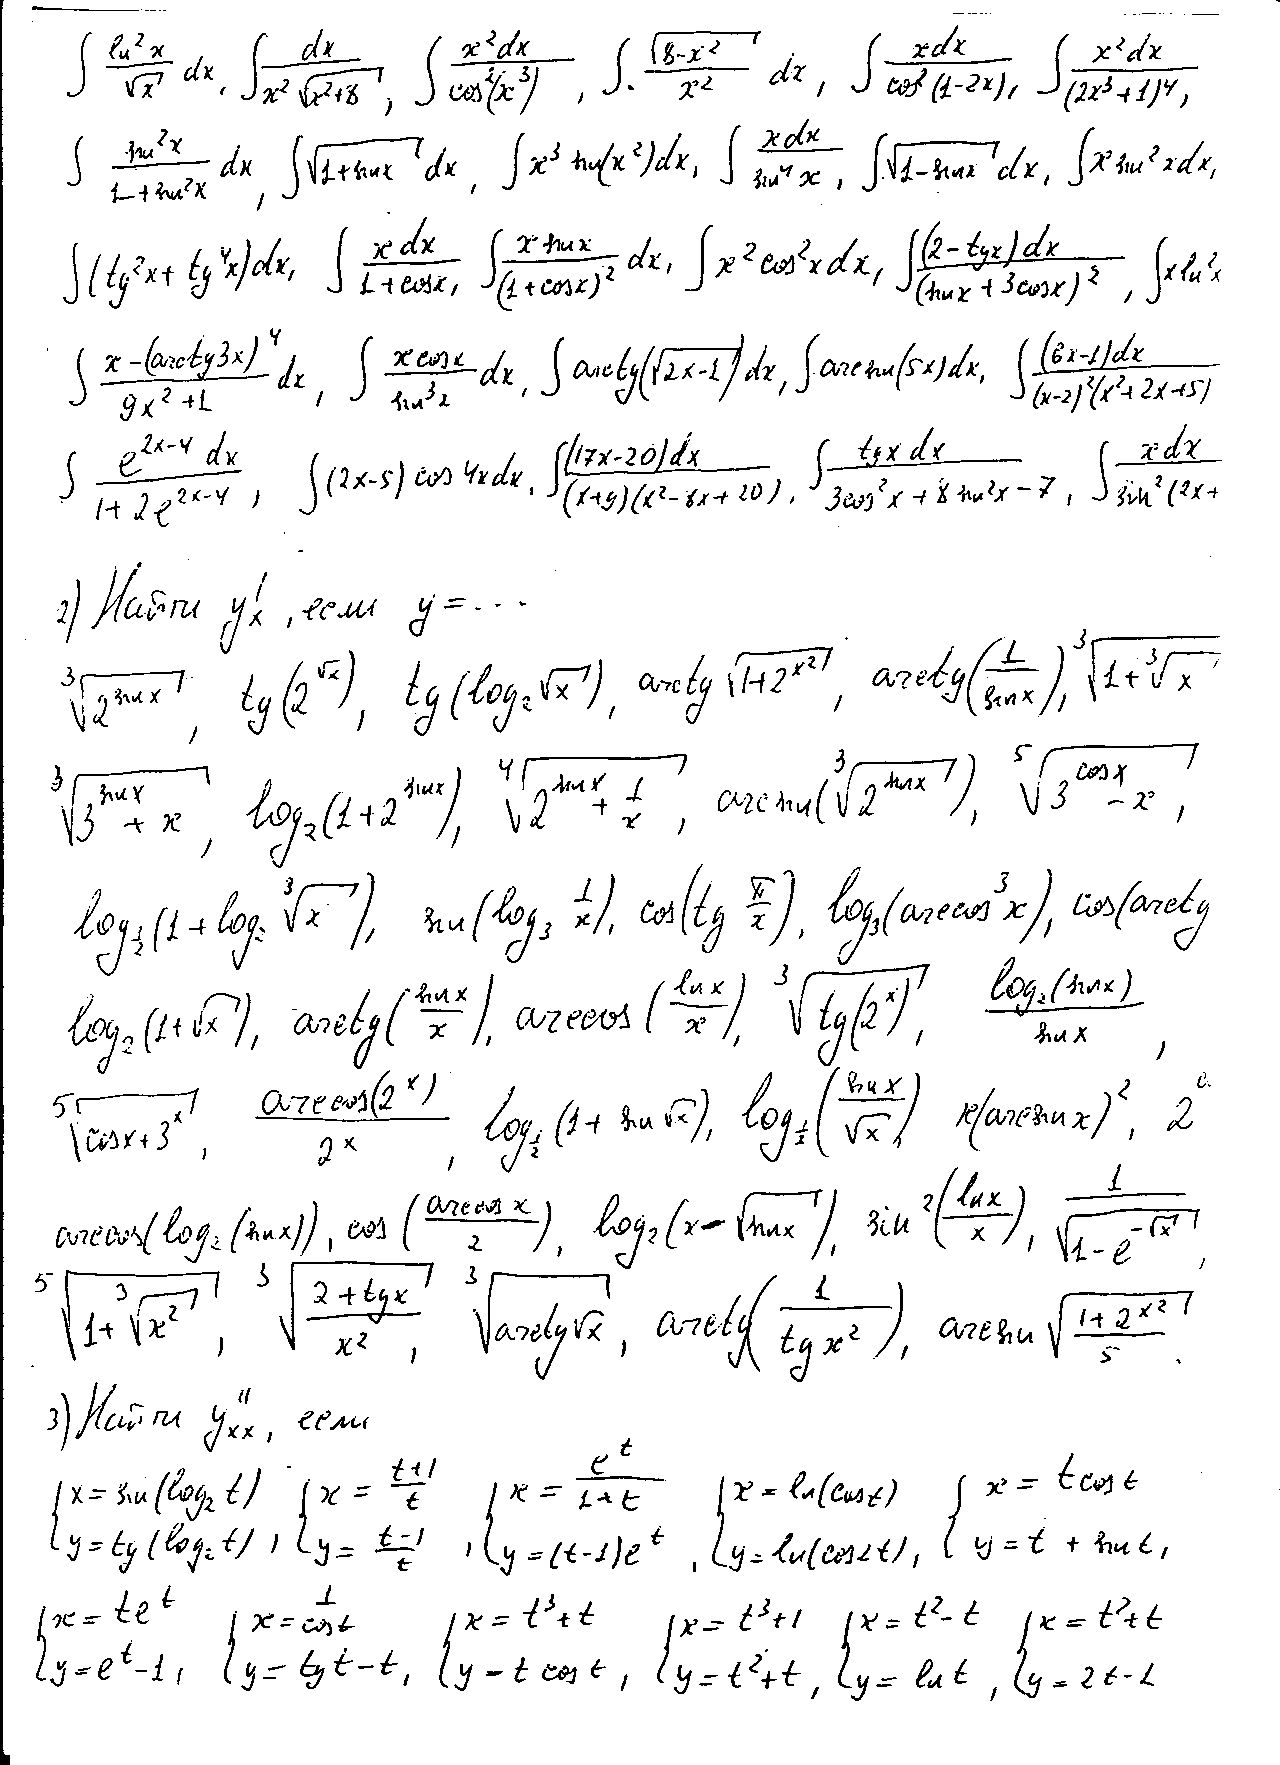 ∫ ln²x/√x dx, ∫ dx/(x²√(x²+8)), ∫ x²dx/cos²(x³), ∫ √(8-x²)/x² dx, ∫ xdx/cos²(1-2x), ∫ x²dx/(2x³+1)⁴,
∫ sin²x/(1+sin²x) dx, ∫√(1+sinx) dx, ∫x³ sin(x²)dx, ∫ xdx/sin⁴x, ∫√(1-sinx) dx, ∫x sin²x dx,
∫(tg²x + tg⁴x)dx, ∫ xdx/(1+cosx), ∫ x sinx/(1+cosx)² dx, ∫x²cos²x dx, ∫ (2-tgx)dx/(sinx+3cosx)², ∫x ln²x
∫ (x-(arctg3x)⁴)/(9x²+1) dx, ∫ x cosx/sin³x dx, ∫arctg(√(2x-1))dx, ∫arcsin(5x)dx, ∫ (6x-1)dx/((x-2)²(x²+2x+5))
∫ e^(2x-4)dx/(1+2e^(2x-4)), ∫(2x-5)cos4xdx, ∫ (17x-20)dx/((x+y)(x²-8x+20)), ∫ tgx dx/(3cos²x+8sin²x-7), ∫ xdx/sin²(2x+
2) Найти y'x, если y=...
∛(2^(sinx)), tg(2^(√x)), tg(log₂√x), arctg√(1+2^(x²)), arctg(1/sinx), ∛(1+∛x)
∛(3^(sinx)+x), log₂(1+2^(sinx)), ∜(2^(sinx)+1/x), arcsin(∛(2^(sinx))), ⁵√(3^(cosx)-x),
log_(1/2)(1+log₂∛x), sin(log₃ 1/x), cos(tg π/x), log₃(arccos³x), cos(arctg
log₂(1+√x), arctg(sinx/x), arccos(lnx/x), ∛(tg(2^x)), log₂(sinx)/sinx,
⁵√(cosx+3^x), arccos(2^x)/2^x, log_(1/2)(1+sin√x), log_(1/2)(sinx/√x) x(arcsinx)², 2
arccos(log₂(sinx)), cos(arccosx/2), log₂(x-√sinx), sin²(lnx/x), 1/√(1-e^(-√x)),
⁵√(1+∛(x²)), ∛((2+tgx)/x²), ∛(arctg√x), arctg(1/tgx²), arcsin√((1+2^(x²))/5).
3) Найти y''xx, если
{x=sin(log₂t) {x=(t+1)/t {x=e^t/(1+t) {x=ln(cost) {x=tcost
{y=tg(log₂t), {y=(t-1)/t, {y=(t-1)e^t, {y=ln(cos2t), {y=t+sint,
{x=te^t {x=1/cost {x=t³+t {x=t³+1 {x=t²-t {x=t²+t
{y=e^t-1, {y=tgt-t, {y-tcost, {y=t²+t, {y=lnt, {y=2t-1